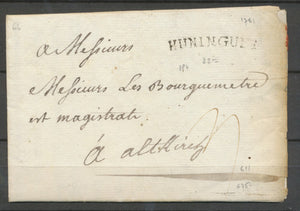 HUNINGUE
a Messieurs
Messieurs Les Bourguemetre
est magistrate
á altkirch